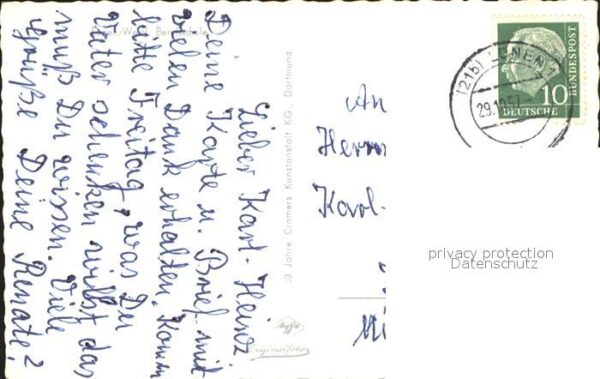 Lieber Karl-Heinz
Deine Karte u. Brief mit
vielen Dank erhalten. Komm
bitte Freitag, was Du
Vater schenken willst das
muß Du wissen. Viele
Grüße Deine Renate!
0 Jahre Cramers Kunstanstalt KG., Dortmund
Agfa
Originalfoto
An
Herrn
Karl-
(21b) LÜNEN
29.10.57
10
DEUTSCHE
BUNDESPOST
privacy protection
Datenschutz